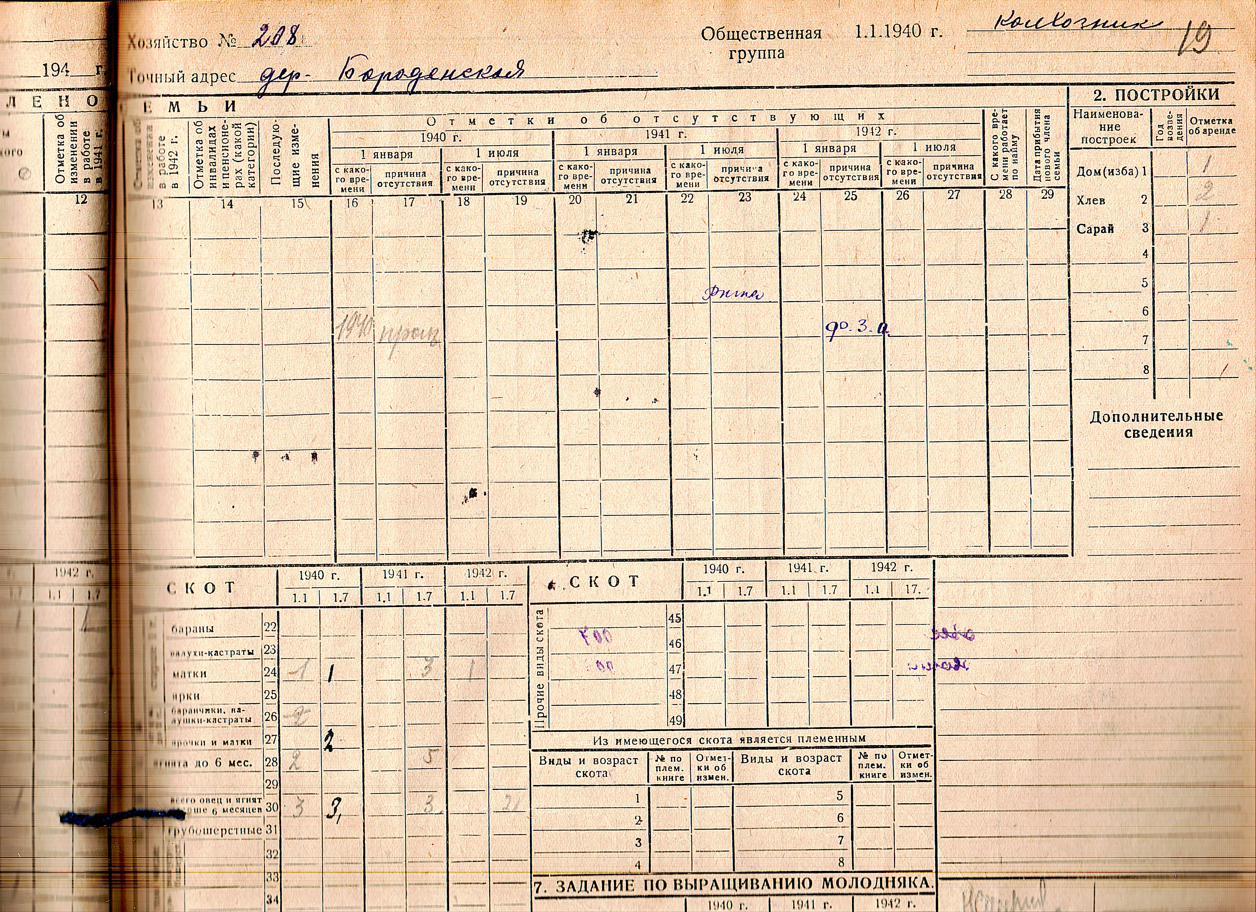 Хозяйство № 208
Общественная группа 1.1.1940 г. колхозник
19
194 г.
Точный адрес дер. Бороденская
ЛЕНО
ЕМЬИ
2. ПОСТРОЙКИ
Отметка об изменении в работе в 1941 г.
в работе в 1942 г.
Отметка об инвалидах и пенсионерах (какой категории)
Последующие изменения
Отметки об отсутствующих
1940 г. 1941 г. 1942 г.
1 января 1 июля 1 января 1 июля 1 января 1 июля
с какого времени причина отсутствия с какого времени причина отсутствия с какого времени причина отсутствия с какого времени причина отсутствия с какого времени причина отсутствия с какого времени причина отсутствия
С какого времени работает по найму
Дата прибытия нового члена семьи
Наименование построек
Год возведения
Отметка об аренде
12 13 14 15 16 17 18 19 20 21 22 23 24 25 26 27 28 29
Дом (изба) 1 1
Хлев 2 2
Сарай 3 1
4
5
6
7
8
1940
до. 3. а
Дополнительные сведения
1942 г.
1.1 1.7
СКОТ 1940 г. 1941 г. 1942 г.
1.1 1.7 1.1 1.7 1.1 1.7
бараны 22
валухи-кастраты 23
матки 24 1 1 3 1
ярки 25
баранчики, валушки-кастраты 26 2
ярочки и матки 27 2
ягнята до 6 мес. 28 2 5
29
всего овец и ягнят старше 6 месяцев 30 3 3, 3
грубошерстные 31
32
33
34
СКОТ 1940 г. 1941 г. 1942 г.
1.1 1.7 1.1 1.7 1.1 17.
Прочие виды скота
45
46
47
48
49
Из имеющегося скота является племенным
Виды и возраст скота № по плем. книге Отметки об измен. Виды и возраст скота № по плем. книге Отметки об измен.
1 5
2 6
3 7
4 8
7. ЗАДАНИЕ ПО ВЫРАЩИВАНИЮ МОЛОДНЯКА.
1940 г. 1941 г. 1942 г.